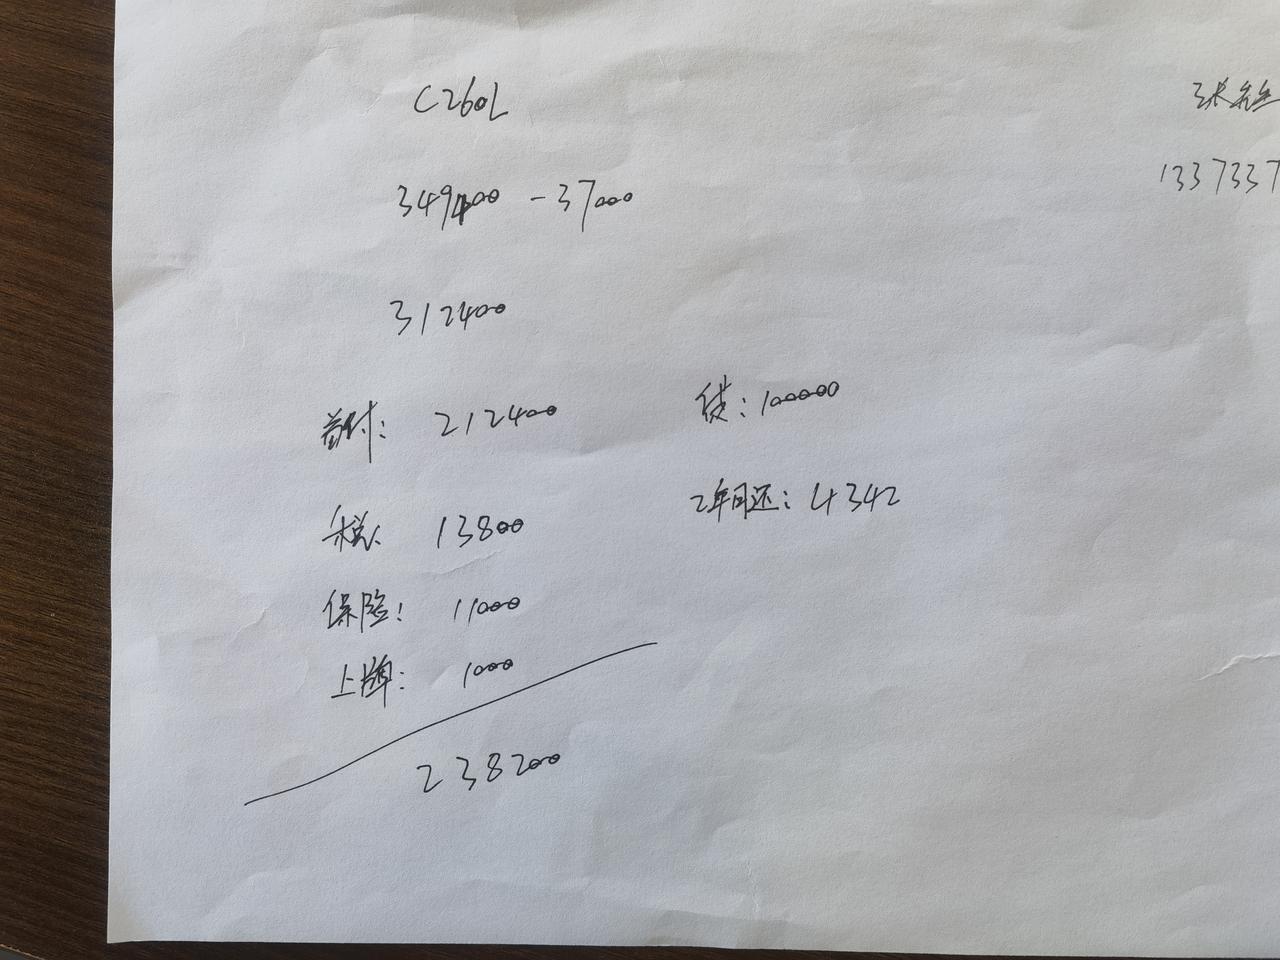 C260L
349400 -37000
312400
首付: 212400
贷: 100000
税: 13800
2年月还: 4342
保险: 11000
上牌: 1000
238200
张
1337337